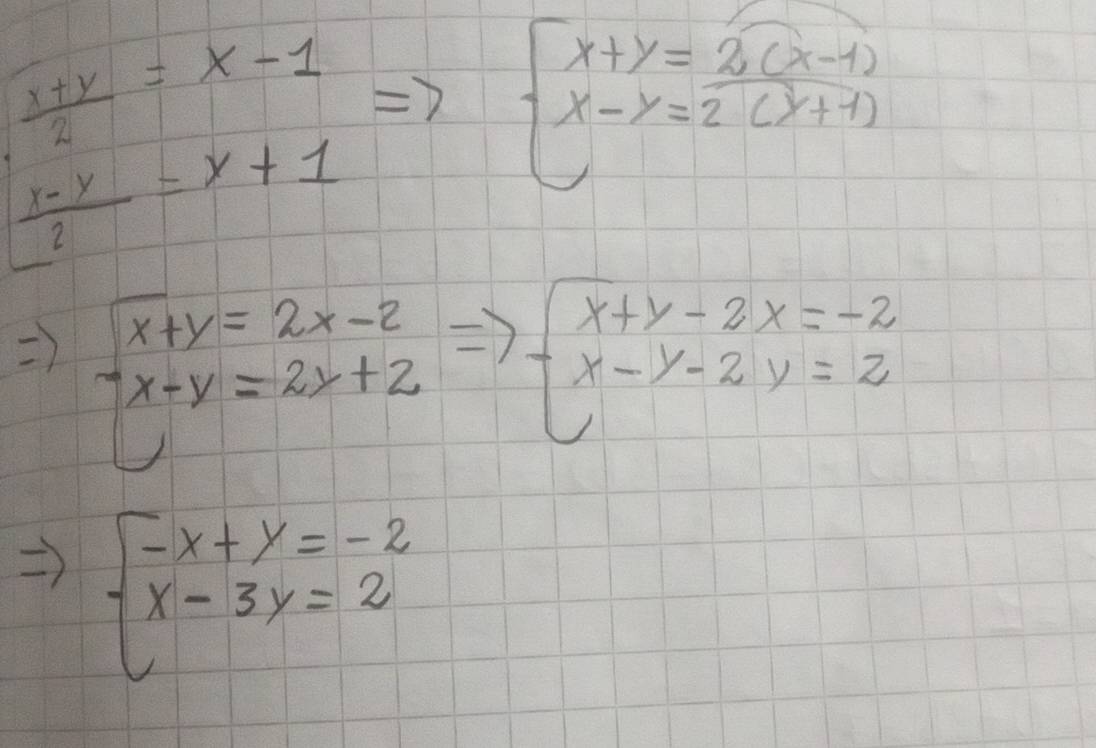 { (x+y)/2 = x - 1 => { x+y = 2(x-1)
{ (x-y)/2 = y + 1 { x-y = 2(y+1)
=> { x+y = 2x-2 => { x+y-2x = -2
{ x-y = 2y+2 { x-y-2y = 2
=> { -x+y = -2
{ x-3y = 2